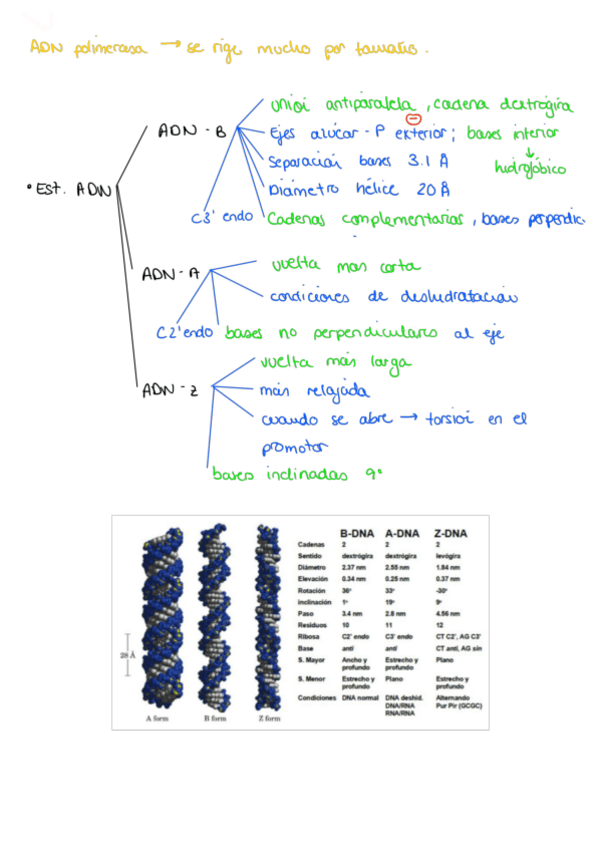 ADN polimerasa → se rige mucho por tamaños.
unión antiparalela, cadena dextrógira
ADN - B
Ejes azúcar - P exterior; bases interior
Separación bases 3.1 Å
hidrofóbico
• EST. ADN
Diámetro hélice 20 Å
C3' endo
Cadenas complementarias, bases perpendic.
vuelta más corta
ADN - A
condiciones de deshidratación
C2'endo
bases no perpendiculares al eje
vuelta más larga
ADN - Z
más relajada
cuando se abre → torsión en el
promotor
bases inclinadas 9°
B-DNA A-DNA Z-DNA
Cadenas 2 2 2
Sentido dextrógira dextrógira levógira
Diámetro 2.37 nm 2.55 nm 1.84 nm
Elevación 0.34 nm 0.25 nm 0.37 nm
Rotación 36° 33° -30°
inclinación 1° 19° 9°
Paso 3.4 nm 2.8 nm 4.56 nm
Residuos 10 11 12
Ribosa C2' endo C3' endo CT C2', AG C3'
Base anti anti CT anti, AG sin
S. Mayor Ancho y profundo Estrecho y profundo Plano
S. Menor Estrecho y profundo Plano Estrecho y profundo
Condiciones DNA normal DNA deshid. DNA/RNA RNA/RNA Alternando Pur Pir (GCGC)
28 Å
A form B form Z form